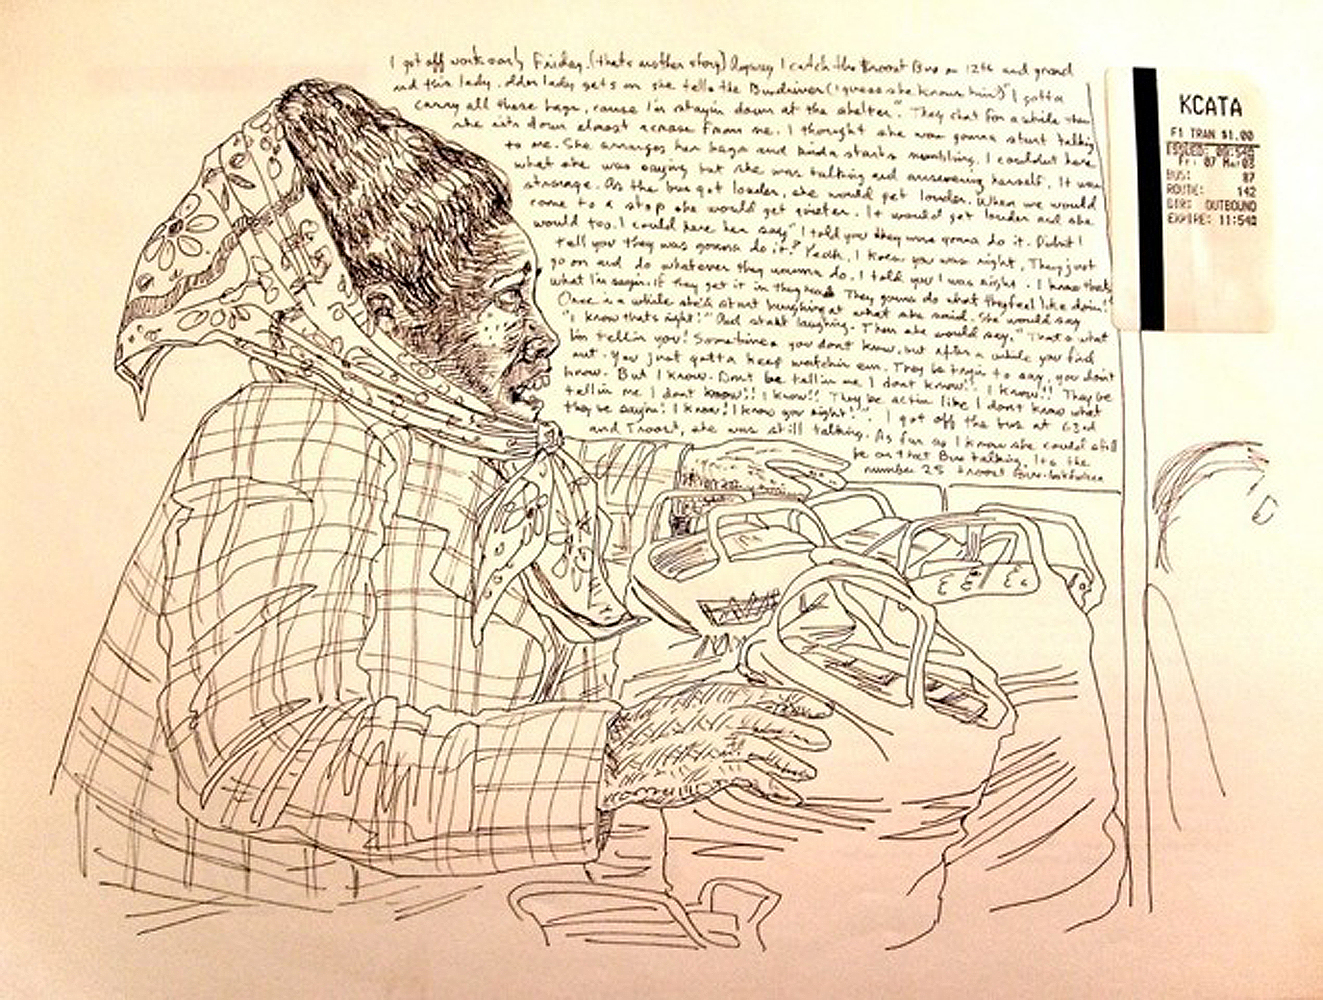 I got off work early Friday. (thats another story) Anyway I catch the Troost Bus on 12th and grand
and this lady, older lady gets on she tells the Busdriver (I guess she knows him) "I gotta
carry all these bags, cause I'm stayin down at the shelter". They chat for a while then
she sits down almost across from me. I thought she was gonna start talking
to me. She arranges her bags and kinda starts mumbling. I couldnt here
what she was saying but she was talking and answering herself. It was
strange. As the bus got louder, she would get louder. When we would
come to a stop she would get quieter. It would get louder and she
would too. I could here her say "I told you they were gonna do it. Didnt I
tell you they was gonna do it? Yeah, I knew you was right. They just
go on and do whatever they wanna do. I told you I was right. I know that
what I'm sayin. If they get it in they head They gonna do what they feel like doin!"
Once in a while she'd start laughing at what she said. She would say
"I know thats right!" And start laughing. Then she would say, "Thats what
Im tellin you! Sometimes you dont know, but after a while you find
out. You just gotta keep watchin em. They be tryin to say, you dont
know. But I know. Dont be tellin me I dont know!! I know!! They be
tellin me I dont know!! I know!! They be actin like I dont know what
they be sayin! I know! I know you right!". I got off the bus at 63rd
and Troost, she was still talking. As far as I know she could still
be on that Bus talking. Its the
number 25 Troost Bus.
KCATA
F1 TRAN $1.00
ISSUED:
Fri 07 Mar 08
BUS: 87
ROUTE: 142
DIR: OUTBOUND
EXPIRE: 11:54a